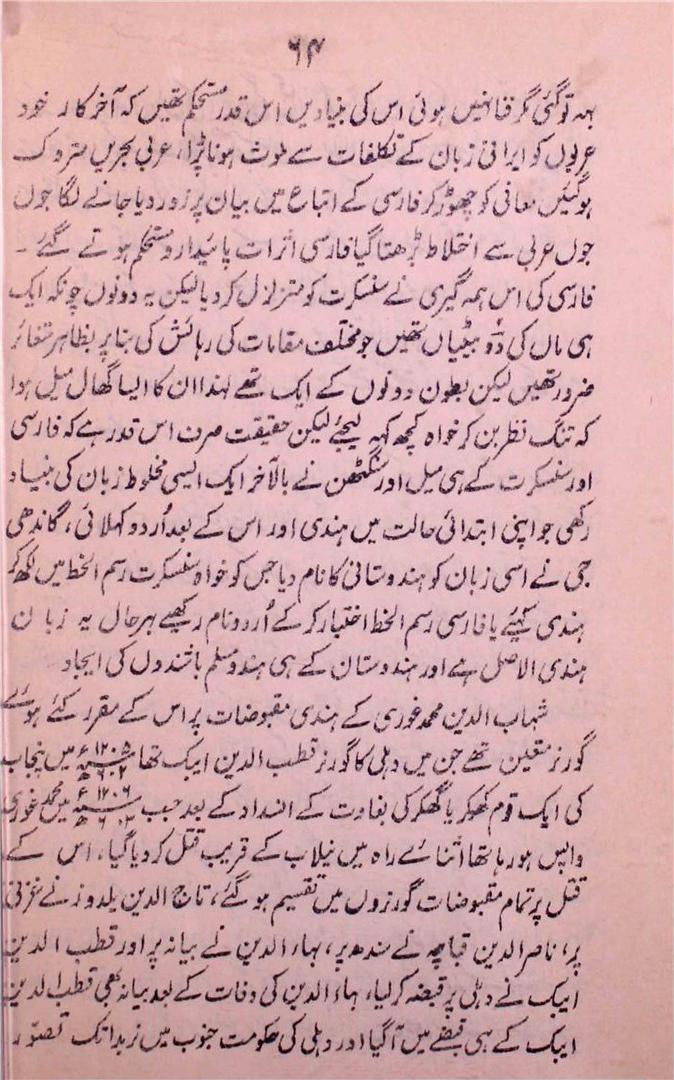 ۶۴
بہہ تو گئی مگر فنا نہیں ہوئی اس کی بنیادیں اس قدر مستحکم تھیں کہ آخر کار خود
عربوں کو ایرانی زبان کے تکلفات سے ملوث ہونا پڑا، عربی بحریں متروک
ہوگئیں معانی کو چھوڑ کر فارسی کے اتباع میں بیان پر زور دیا جانے لگا جوں
جوں عربی سے اختلاط بڑھتا گیا فارسی اثرات پائیدار و مستحکم ہوتے گئے ۔
فارسی کی اس ہمہ گیری نے سنسکرت کو متزلزل کر دیا لیکن یہ دونوں چونکہ ایک
ہی ماں کی دو بیٹیاں تھیں جو مختلف مقامات کی رہائش کی بنا پر بظاہر متغائر
ضرور تھیں لیکن بطون دونوں کے ایک تھے لہندا ان کا ایسا گھال میل ہوا
کہ تنگ نظر بن کر خواہ کچھ کہہ لیجئے لیکن حقیقت صرف اس قدر ہے کہ فارسی
اور سنسکرت کے ہی میل اور سنگٹھن نے بالآخر ایک ایسی مخلوط زبان کی بنیاد
رکھی جو اپنی ابتدائی حالت میں ہندی اور اس کے بعد اُردو کہلائی، گاندھی
جی نے اسی زبان کو ہندوستانی کا نام دیا جس کو خواہ سنسکرت رسم الخط میں لکھ کر
ہندی کہئیے یا فارسی رسم الخط اختیار کر کے اُردو نام رکھیے بہرحال یہ زبان
ہندی الاصل ہے اور ہندوستان کے ہی ہندو مسلم باشندوں کی ایجاد
شہاب الدین محمد غوری کے ہندی مقبوضات پر اس کے مقرر کئے ہوئے
گورنر متعین تھے جن میں دہلی کا گورنر قطب الدین ایبک تھا ۱۲۰۵ء ۶۰۲ھ میں پنجاب
کی ایک قوم کھوکر یا گھکر کی بغاوت کے انسداد کے بعد جب ۱۲۰۶ء ۶۰۲ھ میں محمد غوری
واپس ہو رہا تھا اثنائے راہ میں نیلاب کے قریب قتل کر دیا گیا، اس کے
قتل پر تمام مقبوضات گورنروں میں تقسیم ہو گئے، تاج الدین یلدوز نے غزنی
پر، ناصر الدین قباچہ نے سندھ پر، بہاء الدین نے بیانہ پر اور قطب الدین
ایبک نے دہلی پر قبضہ کر لیا، بہاء الدین کی وفات کے بعد بیانہ بھی قطب الدین
ایبک کے ہی قبضے میں آگیا اور دہلی کی حکومت جنوب میں نربدا تک تصوّر